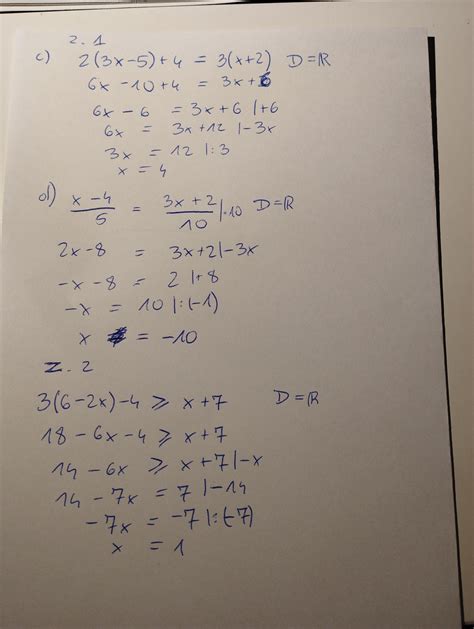 z. 1
c) 2(3x-5)+4 = 3(x+2) D=ℝ
6x -10+4 = 3x+6
6x - 6 = 3x+6 |+6
6x = 3x+12 |-3x
3x = 12 |:3
x = 4
d) x-4/5 = 3x+2/10 |·10 D=ℝ
2x-8 = 3x+2|-3x
-x - 8 = 2 |+8
-x = 10 |:(-1)
x = -10
z. 2
3(6-2x)-4 ⩾ x+7 D=ℝ
18-6x-4 ⩾ x+7
14-6x ⩾ x+7|-x
14-7x = 7 |-14
-7x = -7 |:(-7)
x = 1